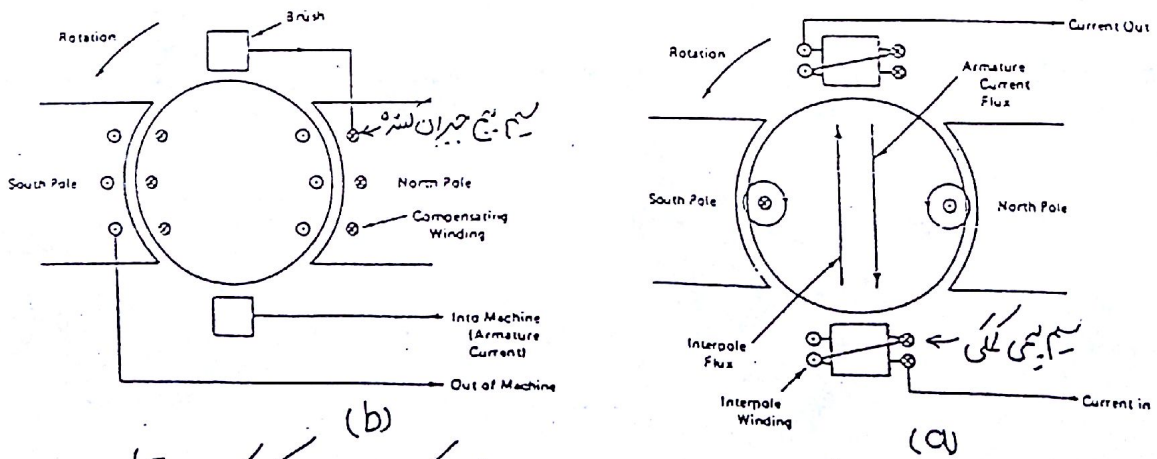 Brush
Rotation
سیم پیچ جبران کننده
South Pole
North Pole
Compensating
Winding
Into Machine
(Armature
Current)
Out of Machine
(b)
Current Out
Rotation
Armature
Current
Flux
South Pole
North Pole
Interpole
Flux
سیم پیچی کمکی
Interpole
Winding
Current in
(a)